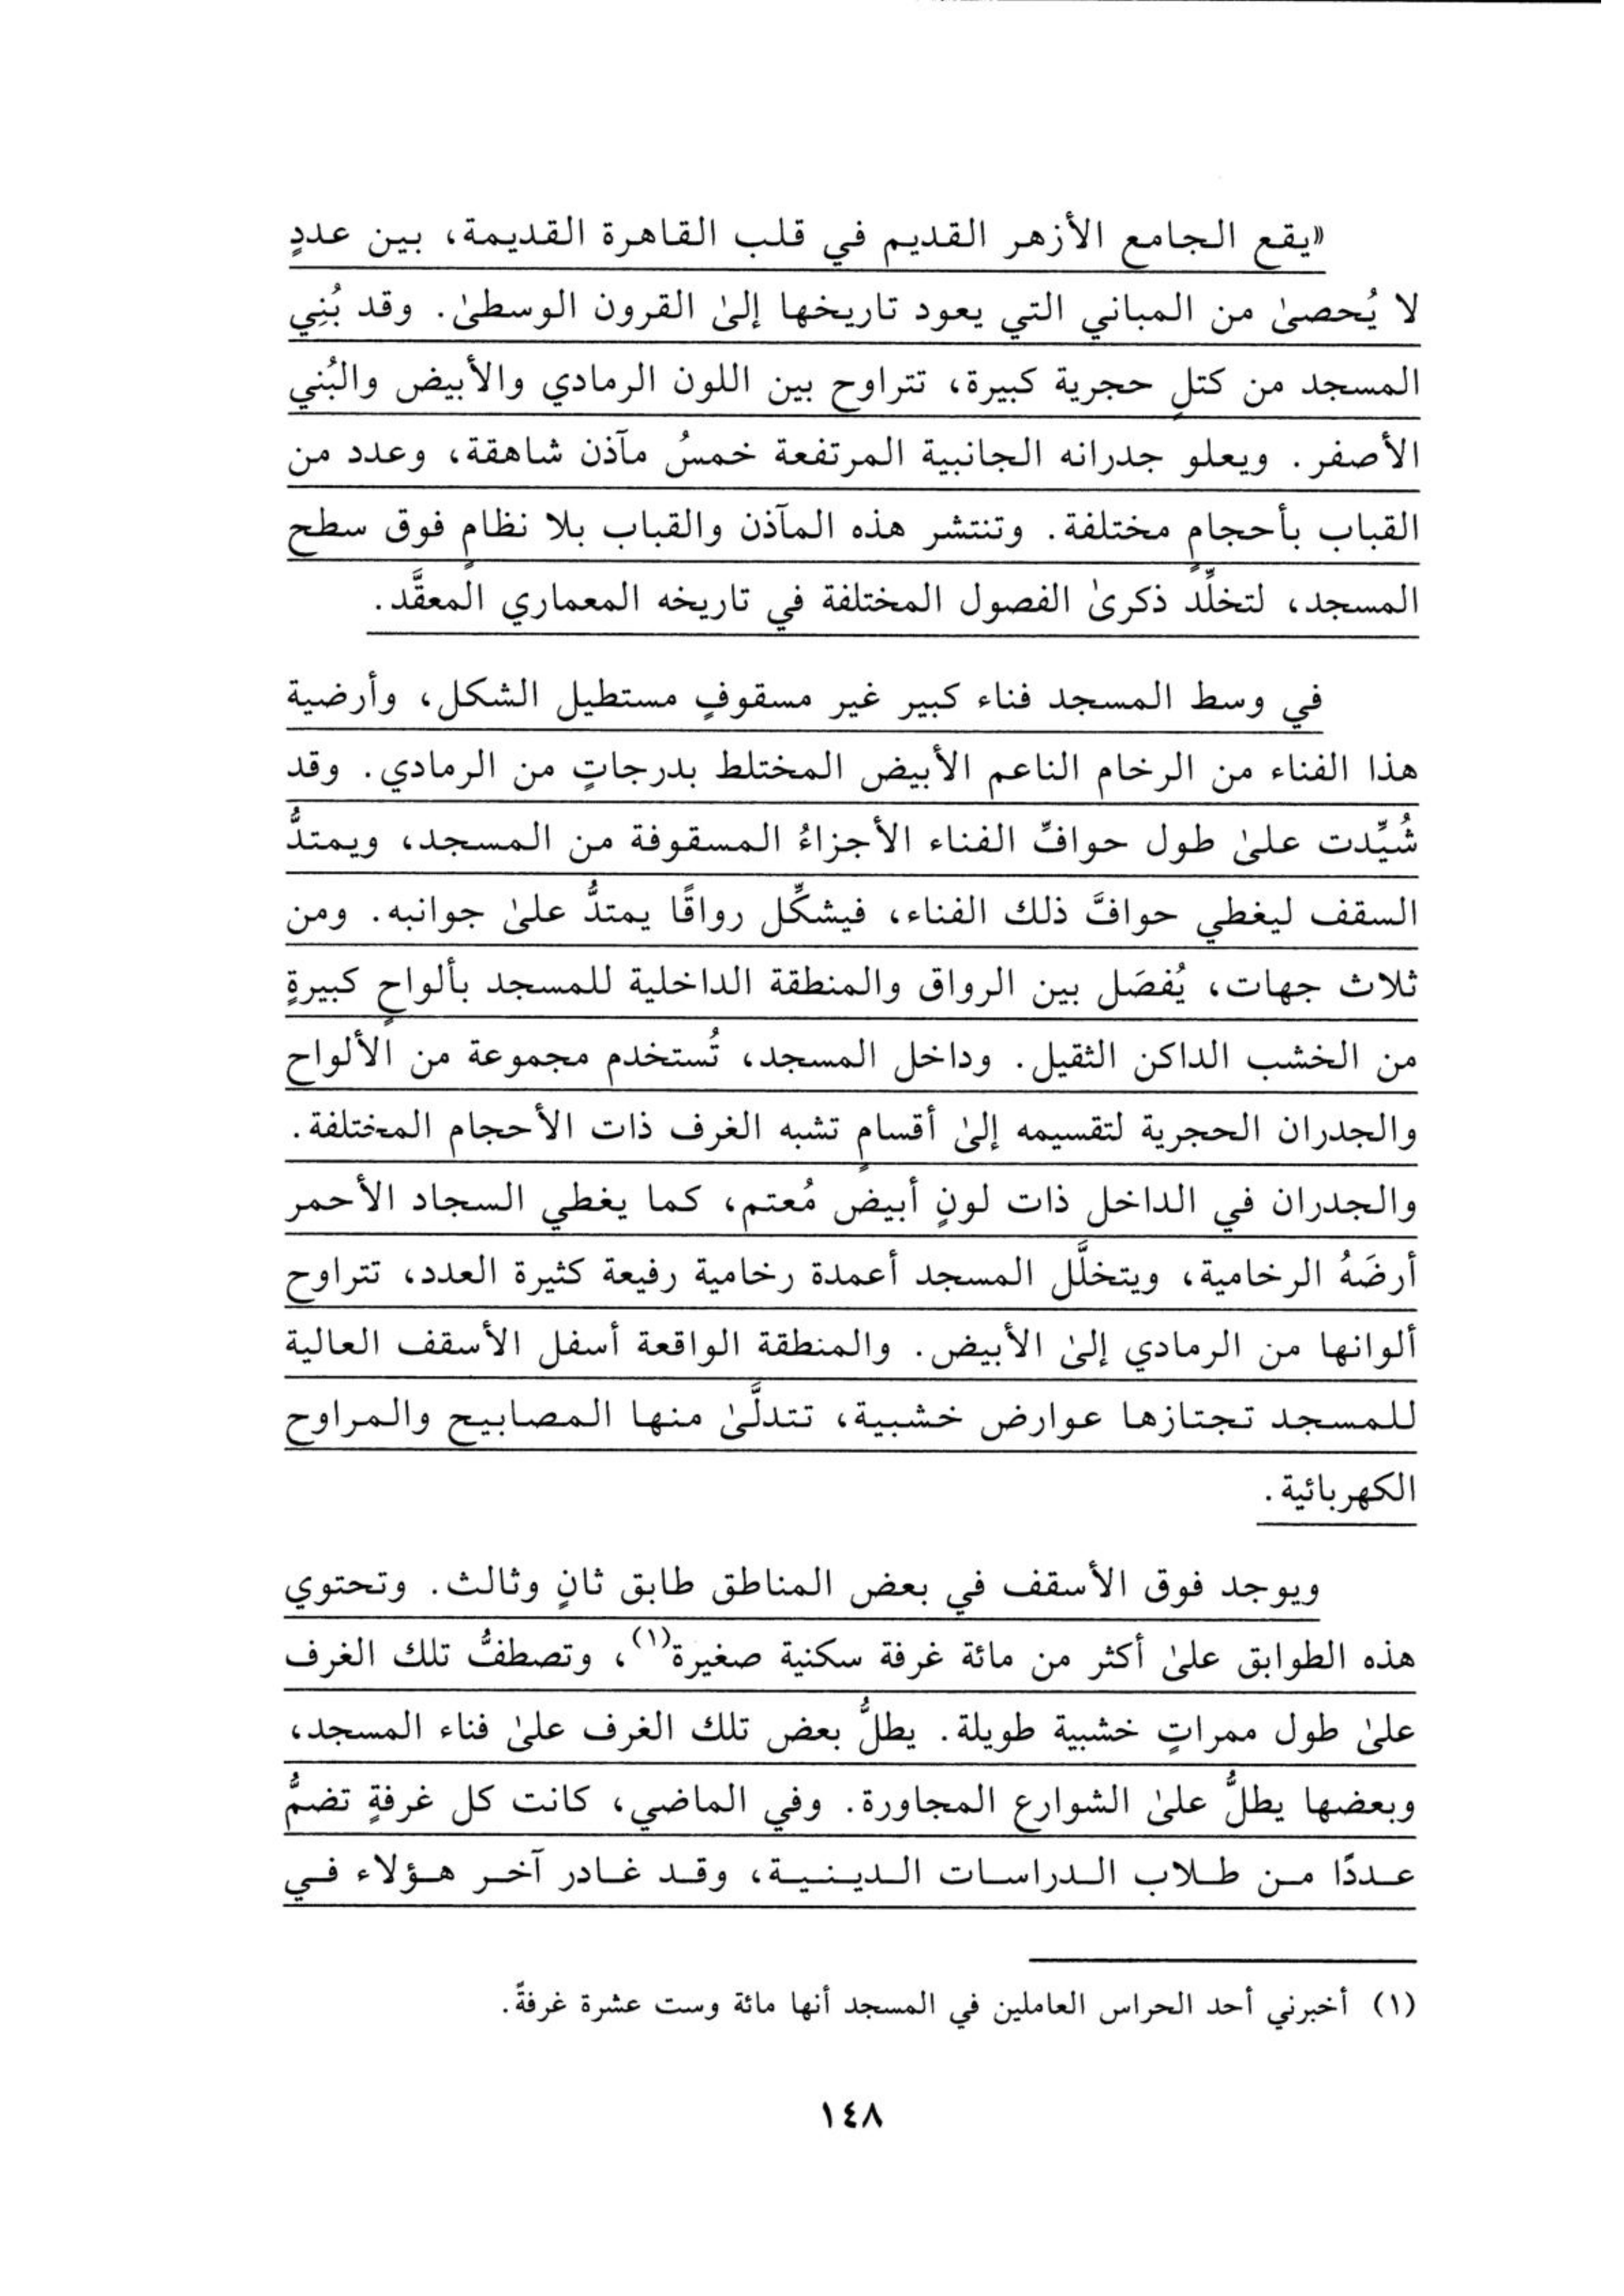 «يقع الجامع الأزهر القديم في قلب القاهرة القديمة، بين عددٍ
لا يُحصىٰ من المباني التي يعود تاريخها إلىٰ القرون الوسطىٰ. وقد بُنِي
المسجد من كتلٍ حجرية كبيرة، تتراوح بين اللون الرمادي والأبيض والبُني
الأصفر. ويعلو جدرانه الجانبية المرتفعة خمسُ مآذن شاهقة، وعدد من
القباب بأحجامٍ مختلفة. وتنتشر هذه المآذن والقباب بلا نظامٍ فوق سطح
المسجد، لتخلِّد ذكرىٰ الفصول المختلفة في تاريخه المعماري المعقَّد.
في وسط المسجد فناء كبير غير مسقوفٍ مستطيل الشكل، وأرضية
هذا الفناء من الرخام الناعم الأبيض المختلط بدرجاتٍ من الرمادي. وقد
شُيِّدت علىٰ طول حوافِّ الفناء الأجزاءُ المسقوفة من المسجد، ويمتدُّ
السقف ليغطي حوافَّ ذلك الفناء، فيشكِّل رواقًا يمتدُّ علىٰ جوانبه. ومن
ثلاث جهات، يُفصَل بين الرواق والمنطقة الداخلية للمسجد بألواحٍ كبيرةٍ
من الخشب الداكن الثقيل. وداخل المسجد، تُستخدم مجموعة من الألواح
والجدران الحجرية لتقسيمه إلىٰ أقسامٍ تشبه الغرف ذات الأحجام المختلفة.
والجدران في الداخل ذات لونٍ أبيض مُعتم، كما يغطي السجاد الأحمر
أرضَهُ الرخامية، ويتخلَّل المسجد أعمدة رخامية رفيعة كثيرة العدد، تتراوح
ألوانها من الرمادي إلىٰ الأبيض. والمنطقة الواقعة أسفل الأسقف العالية
للمسجد تجتازها عوارض خشبية، تتدلَّىٰ منها المصابيح والمراوح
الكهربائية.
ويوجد فوق الأسقف في بعض المناطق طابق ثانٍ وثالث. وتحتوي
هذه الطوابق علىٰ أكثر من مائة غرفة سكنية صغيرة(١)، وتصطفُّ تلك الغرف
علىٰ طول ممراتٍ خشبية طويلة. يطلُّ بعض تلك الغرف علىٰ فناء المسجد،
وبعضها يطلُّ علىٰ الشوارع المجاورة. وفي الماضي، كانت كل غرفةٍ تضمُّ
عددًا من طلاب الدراسات الدينية، وقد غادر آخر هؤلاء في
(١) أخبرني أحد الحراس العاملين في المسجد أنها مائة وست عشرة غرفةً.
١٤٨